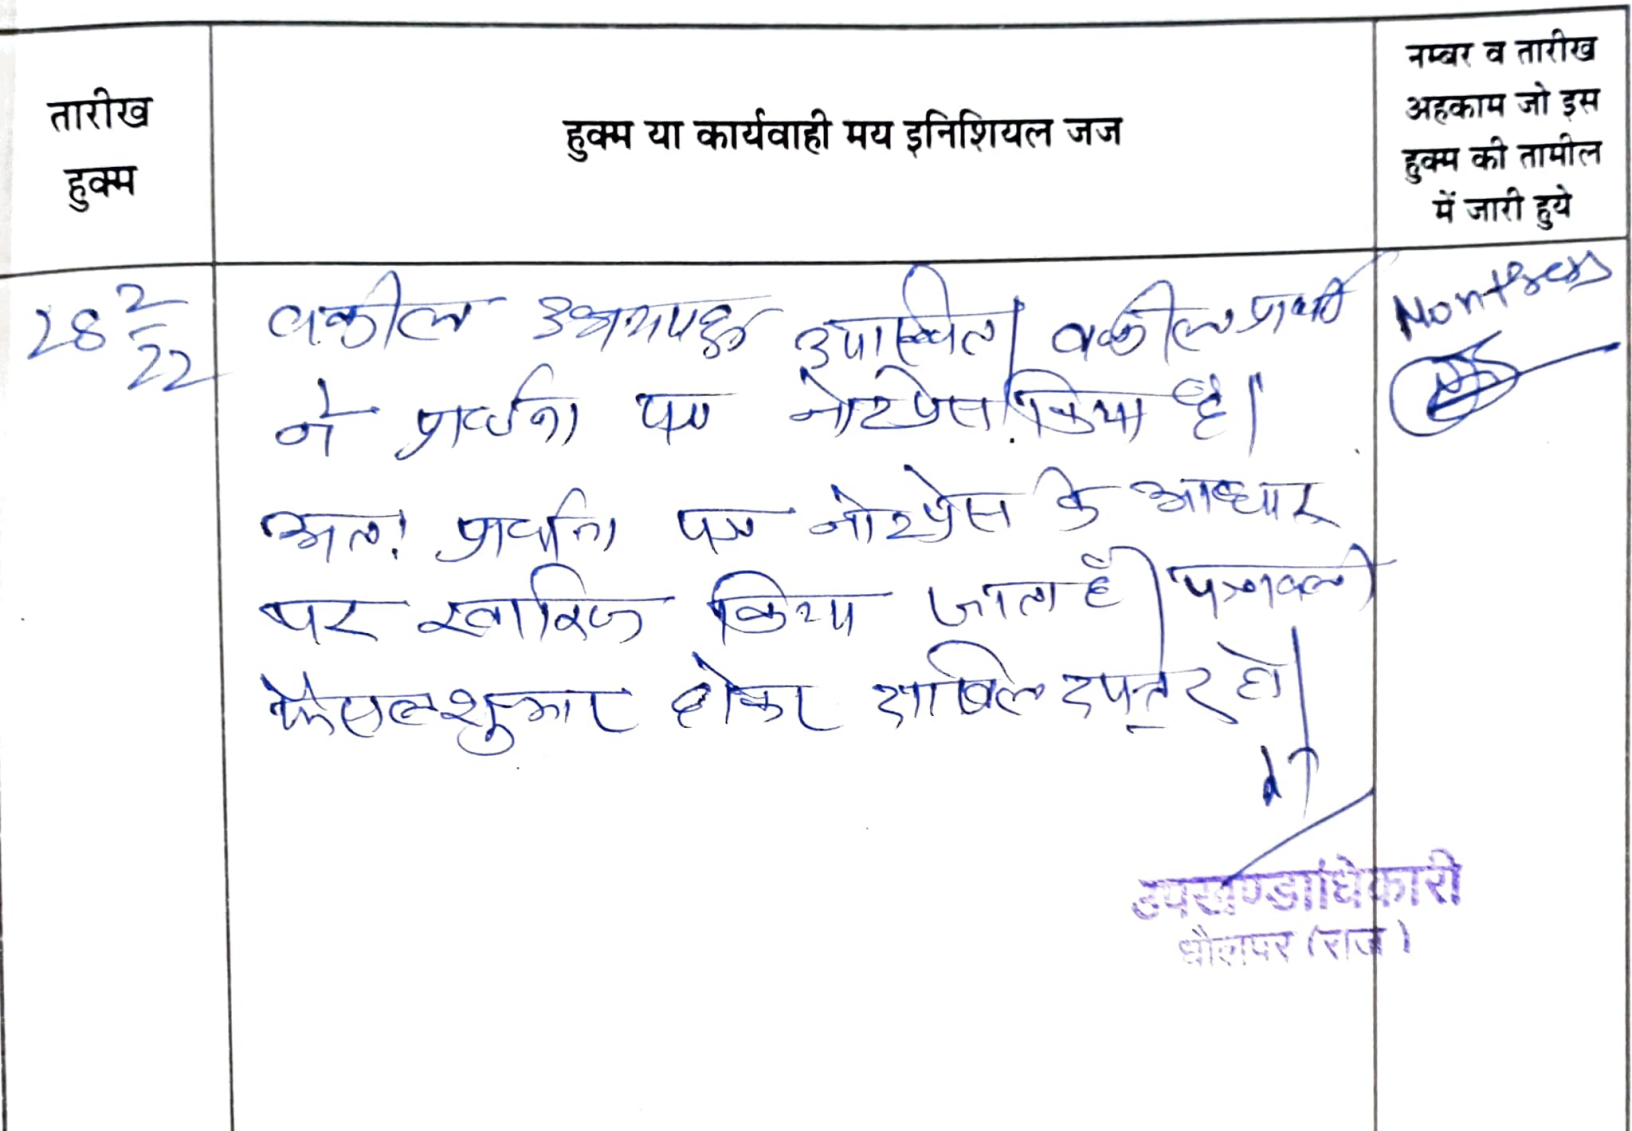 तारीख
हुक्म
हुक्म या कार्यवाही मय इनिशियल जज
नम्बर व तारीख
अहकाम जो इस
हुक्म की तामील
में जारी हुये
28 2/22
वकील उभयपक्ष उपस्थित। वकील प्रार्थी
ने प्रार्थना पत्र नोटप्रेस किया है।
अतः प्रार्थना पत्र नोटप्रेस के आधार
पर खारिज किया जाता है। पत्रावली
फैसलशुमार होकर दाखिल दफ्तर हो।
उपखण्डाधिकारी
धौलपुर (राज)